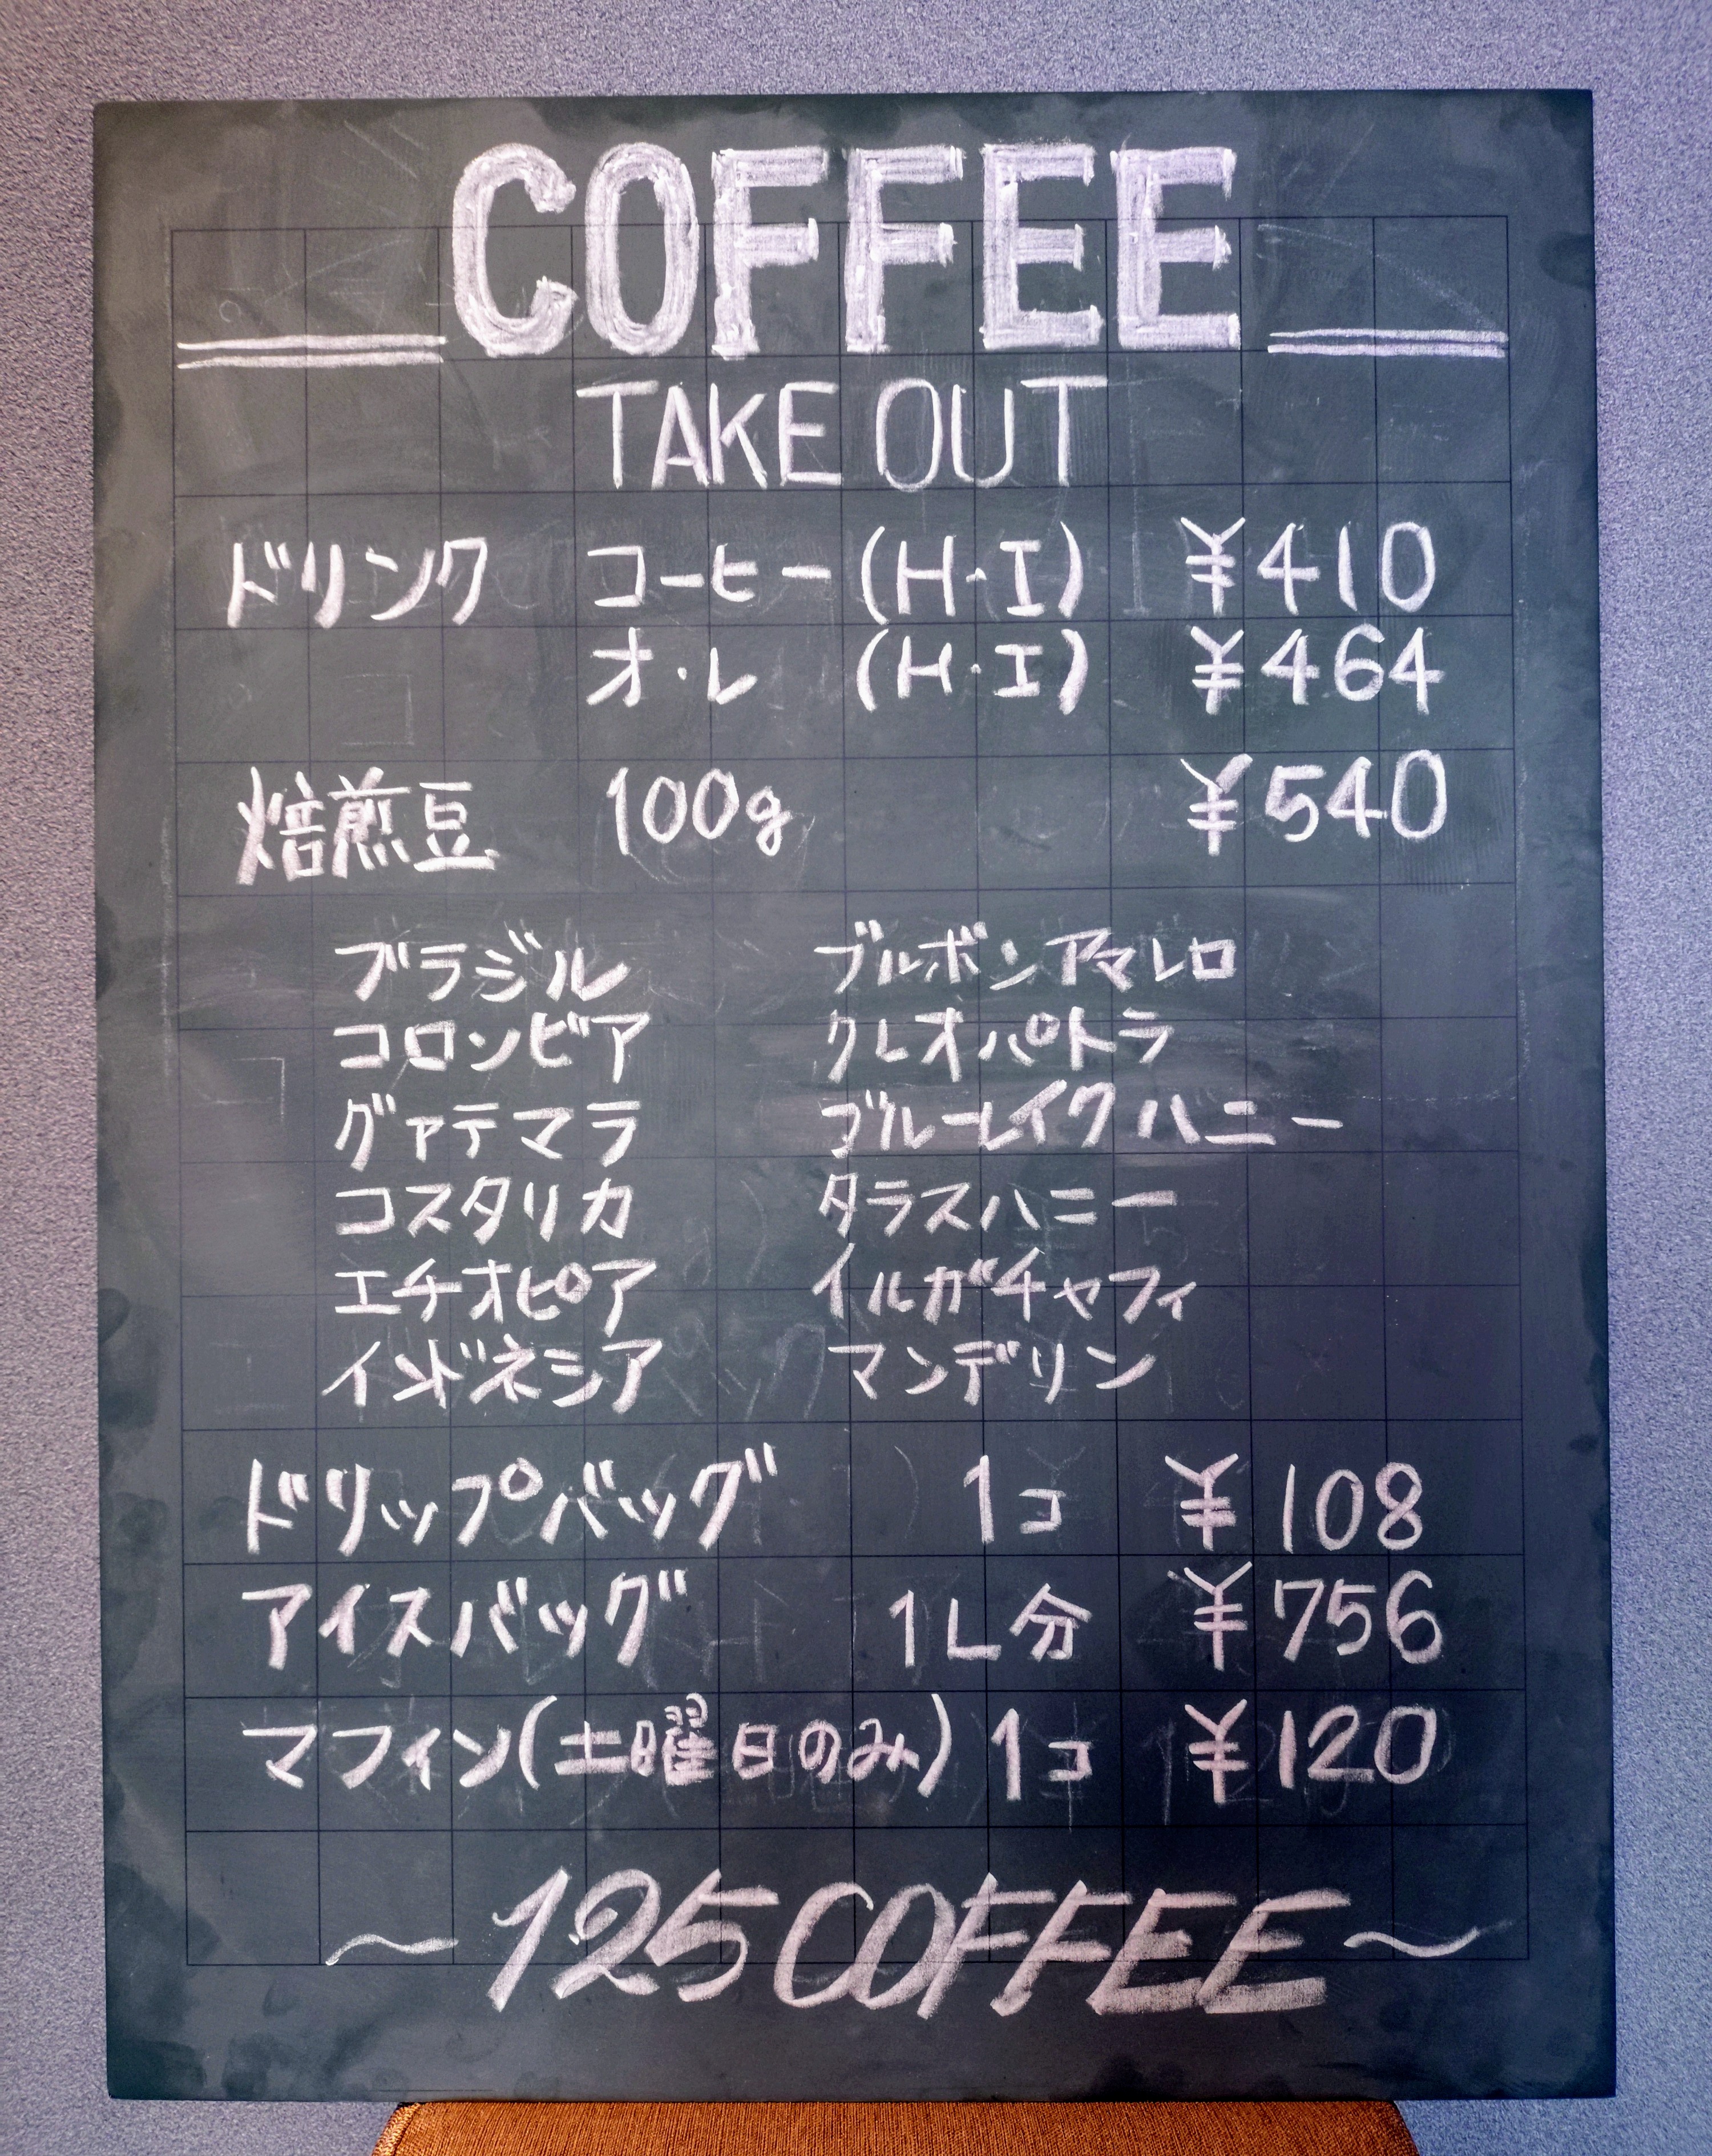 COFFEE
TAKE OUT
ドリンク コーヒー (H・I) ¥410
オ・レ (H・I) ¥464
焙煎豆 100g ¥540
ブラジル ブルボンアマレロ
コロンビア クレオパトラ
グァテマラ ブルーレイクハニー
コスタリカ タラスハニー
エチオピア イルガチャフィ
インドネシア マンデリン
ドリップバッグ 1コ ¥108
アイスバッグ 1L分 ¥756
マフィン(土曜日のみ) 1コ ¥120
～125COFFEE～